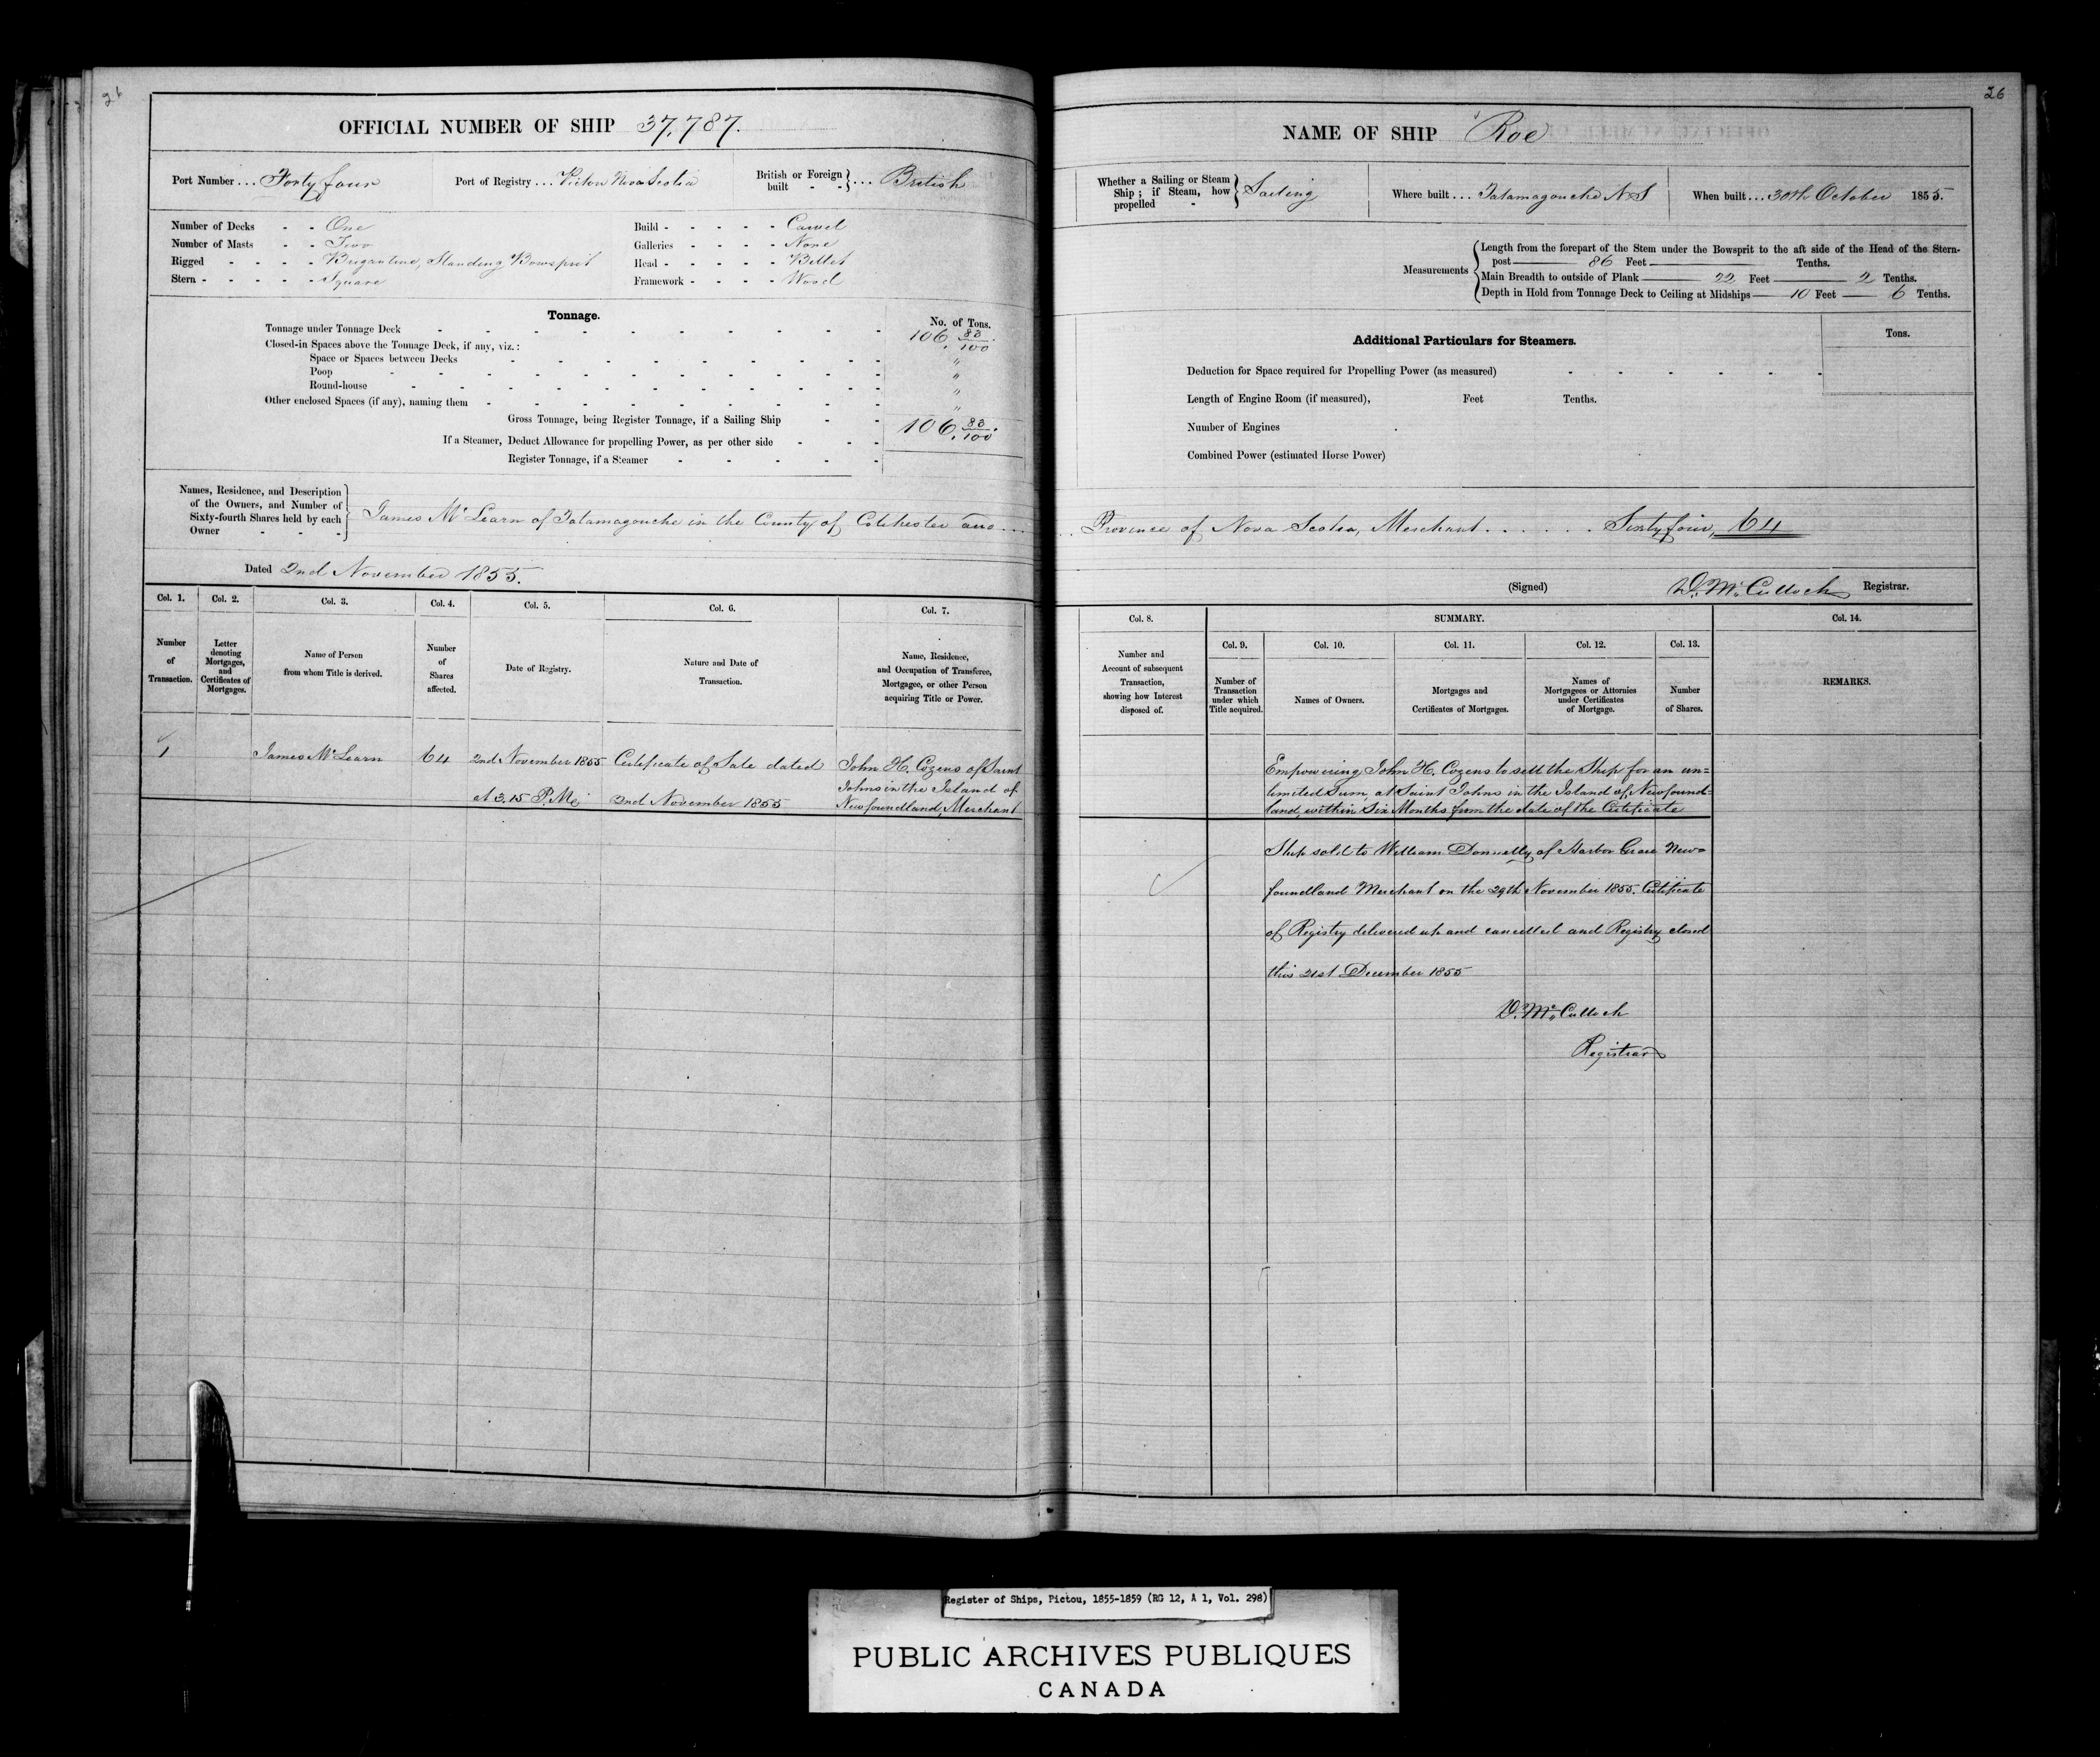 26
OFFICIAL NUMBER OF SHIP 37,787.
Port Number ... Forty four
Port of Registry ... Pictou Nova Scotia
British or Foreign built - - } ... British
Number of Decks - - One
Number of Masts - - Two
Rigged - - - - Brigantine, Standing Bowsprit
Stern - - - - - Square
Build - - - - - Carvel
Galleries - - - - None
Head - - - - - Billet
Framework - - - - Wood
Tonnage.
No. of Tons.
Tonnage under Tonnage Deck 106 83/100
Closed-in Spaces above the Tonnage Deck, if any, viz.:
Space or Spaces between Decks "
Poop "
Round-house "
Other enclosed Spaces (if any), naming them "
Gross Tonnage, being Register Tonnage, if a Sailing Ship 106 83/100
If a Steamer, Deduct Allowance for propelling Power, as per other side
Register Tonnage, if a Steamer
Names, Residence, and Description
of the Owners, and Number of
Sixty-fourth Shares held by each
Owner - - -
James McLearn of Tatamagouche in the County of Colchester and ...
Dated 2nd November 1855.
Col. 1. Col. 2. Col. 3. Col. 4. Col. 5. Col. 6. Col. 7.
Number of Transaction.
Letter denoting Mortgages, and Certificates of Mortgages.
Name of Person from whom Title is derived.
Number of Shares affected.
Date of Registry.
Nature and Date of Transaction.
Name, Residence, and Occupation of Transferee, Mortgagee, or other Person acquiring Title or Power.
1 James McLearn 64 2nd November 1855 Certificate of Sale dated John H. Cozens of Saint
Johns in the Island of
at 3.15 P.M. 2nd November 1855 Newfoundland, Merchant
26
NAME OF SHIP Roe
Whether a Sailing or Steam Ship; if Steam, how propelled - } Sailing
Where built ... Tatamagouche N.S
When built ... 30th October 1855.
Measurements
Length from the forepart of the Stem under the Bowsprit to the aft side of the Head of the Stern-
post 86 Feet Tenths.
Main Breadth to outside of Plank 22 Feet 2 Tenths.
Depth in Hold from Tonnage Deck to Ceiling at Midships 10 Feet 6 Tenths.
Additional Particulars for Steamers.
Tons.
Deduction for Space required for Propelling Power (as measured)
Length of Engine Room (if measured), Feet Tenths.
Number of Engines
Combined Power (estimated Horse Power)
.. Province of Nova Scotia, Merchant . . . . . . Sixty four, 64
(Signed) D. McCulloch Registrar.
Col. 8. SUMMARY. Col. 14.
Col. 9. Col. 10. Col. 11. Col. 12. Col. 13.
Number and Account of subsequent Transaction, showing how Interest disposed of.
Number of Transaction under which Title acquired.
Names of Owners.
Mortgages and Certificates of Mortgages.
Names of Mortgagees or Attornies under Certificates of Mortgage.
Number of Shares.
REMARKS.
Empowering John H. Cozens to sell the Ship for an un=
limited Sum, at Saint Johns in the Island of Newfound=
land, within Six Months from the date of the Certificate
Ship sold to William Donnelly of Harbor Grace New=
foundland Merchant on the 29th November 1855. Certificate
of Registry delivered up and cancelled and Registry closed
this 21st December 1855
D. McCulloch
Registrar
Register of Ships, Pictou, 1855-1859 (RG 12, A 1, Vol. 298)
PUBLIC ARCHIVES PUBLIQUES
CANADA